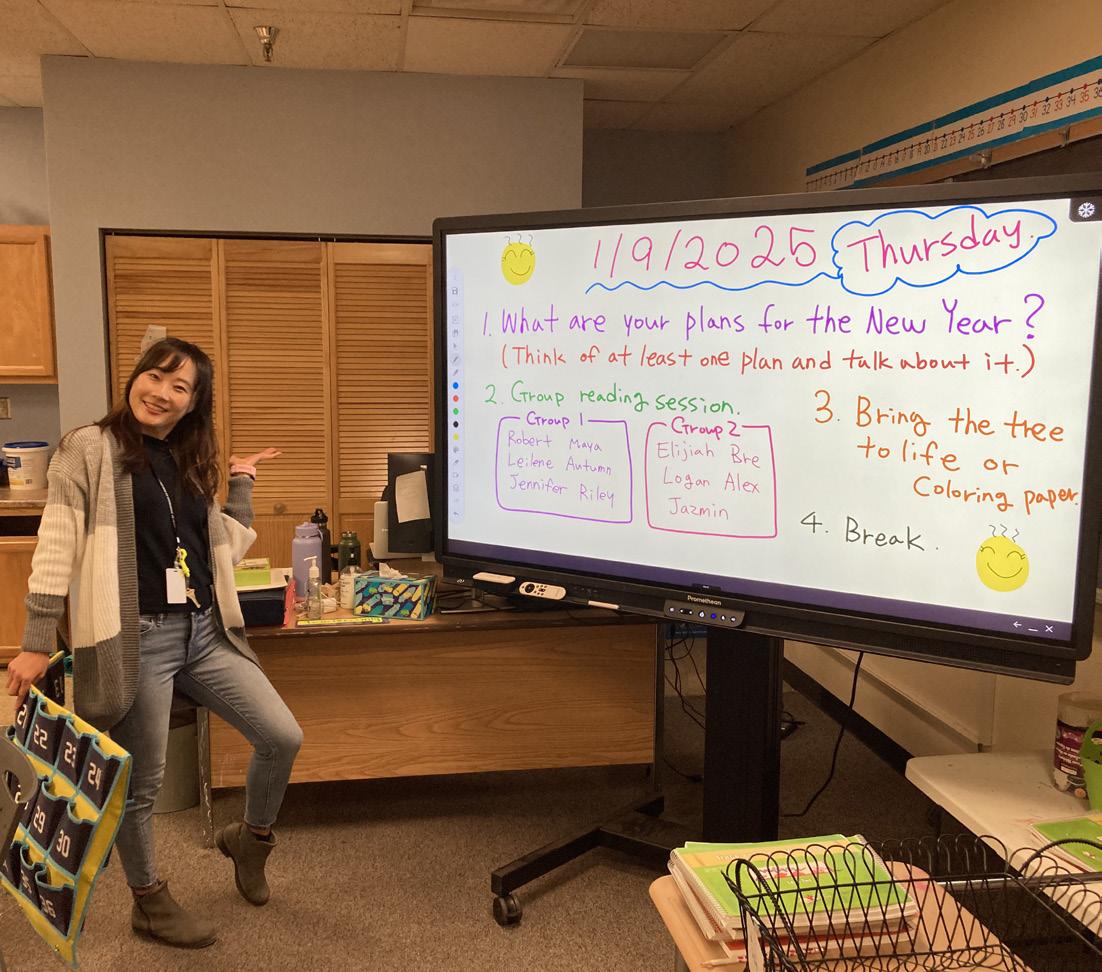 1/9/2025 Thursday.
1. What are your plans for the New Year?
(Think of at least one plan and talk about it.)
2. Group reading session.
Group 1
Robert Maya
Leilene Autumn
Jennifer Riley
Group 2
Elijiah Bre
Logan Alex
Jazmin
3. Bring the tree
to life or
Coloring paper.
4. Break.
Promethean
21 22 23 24
29 30
36